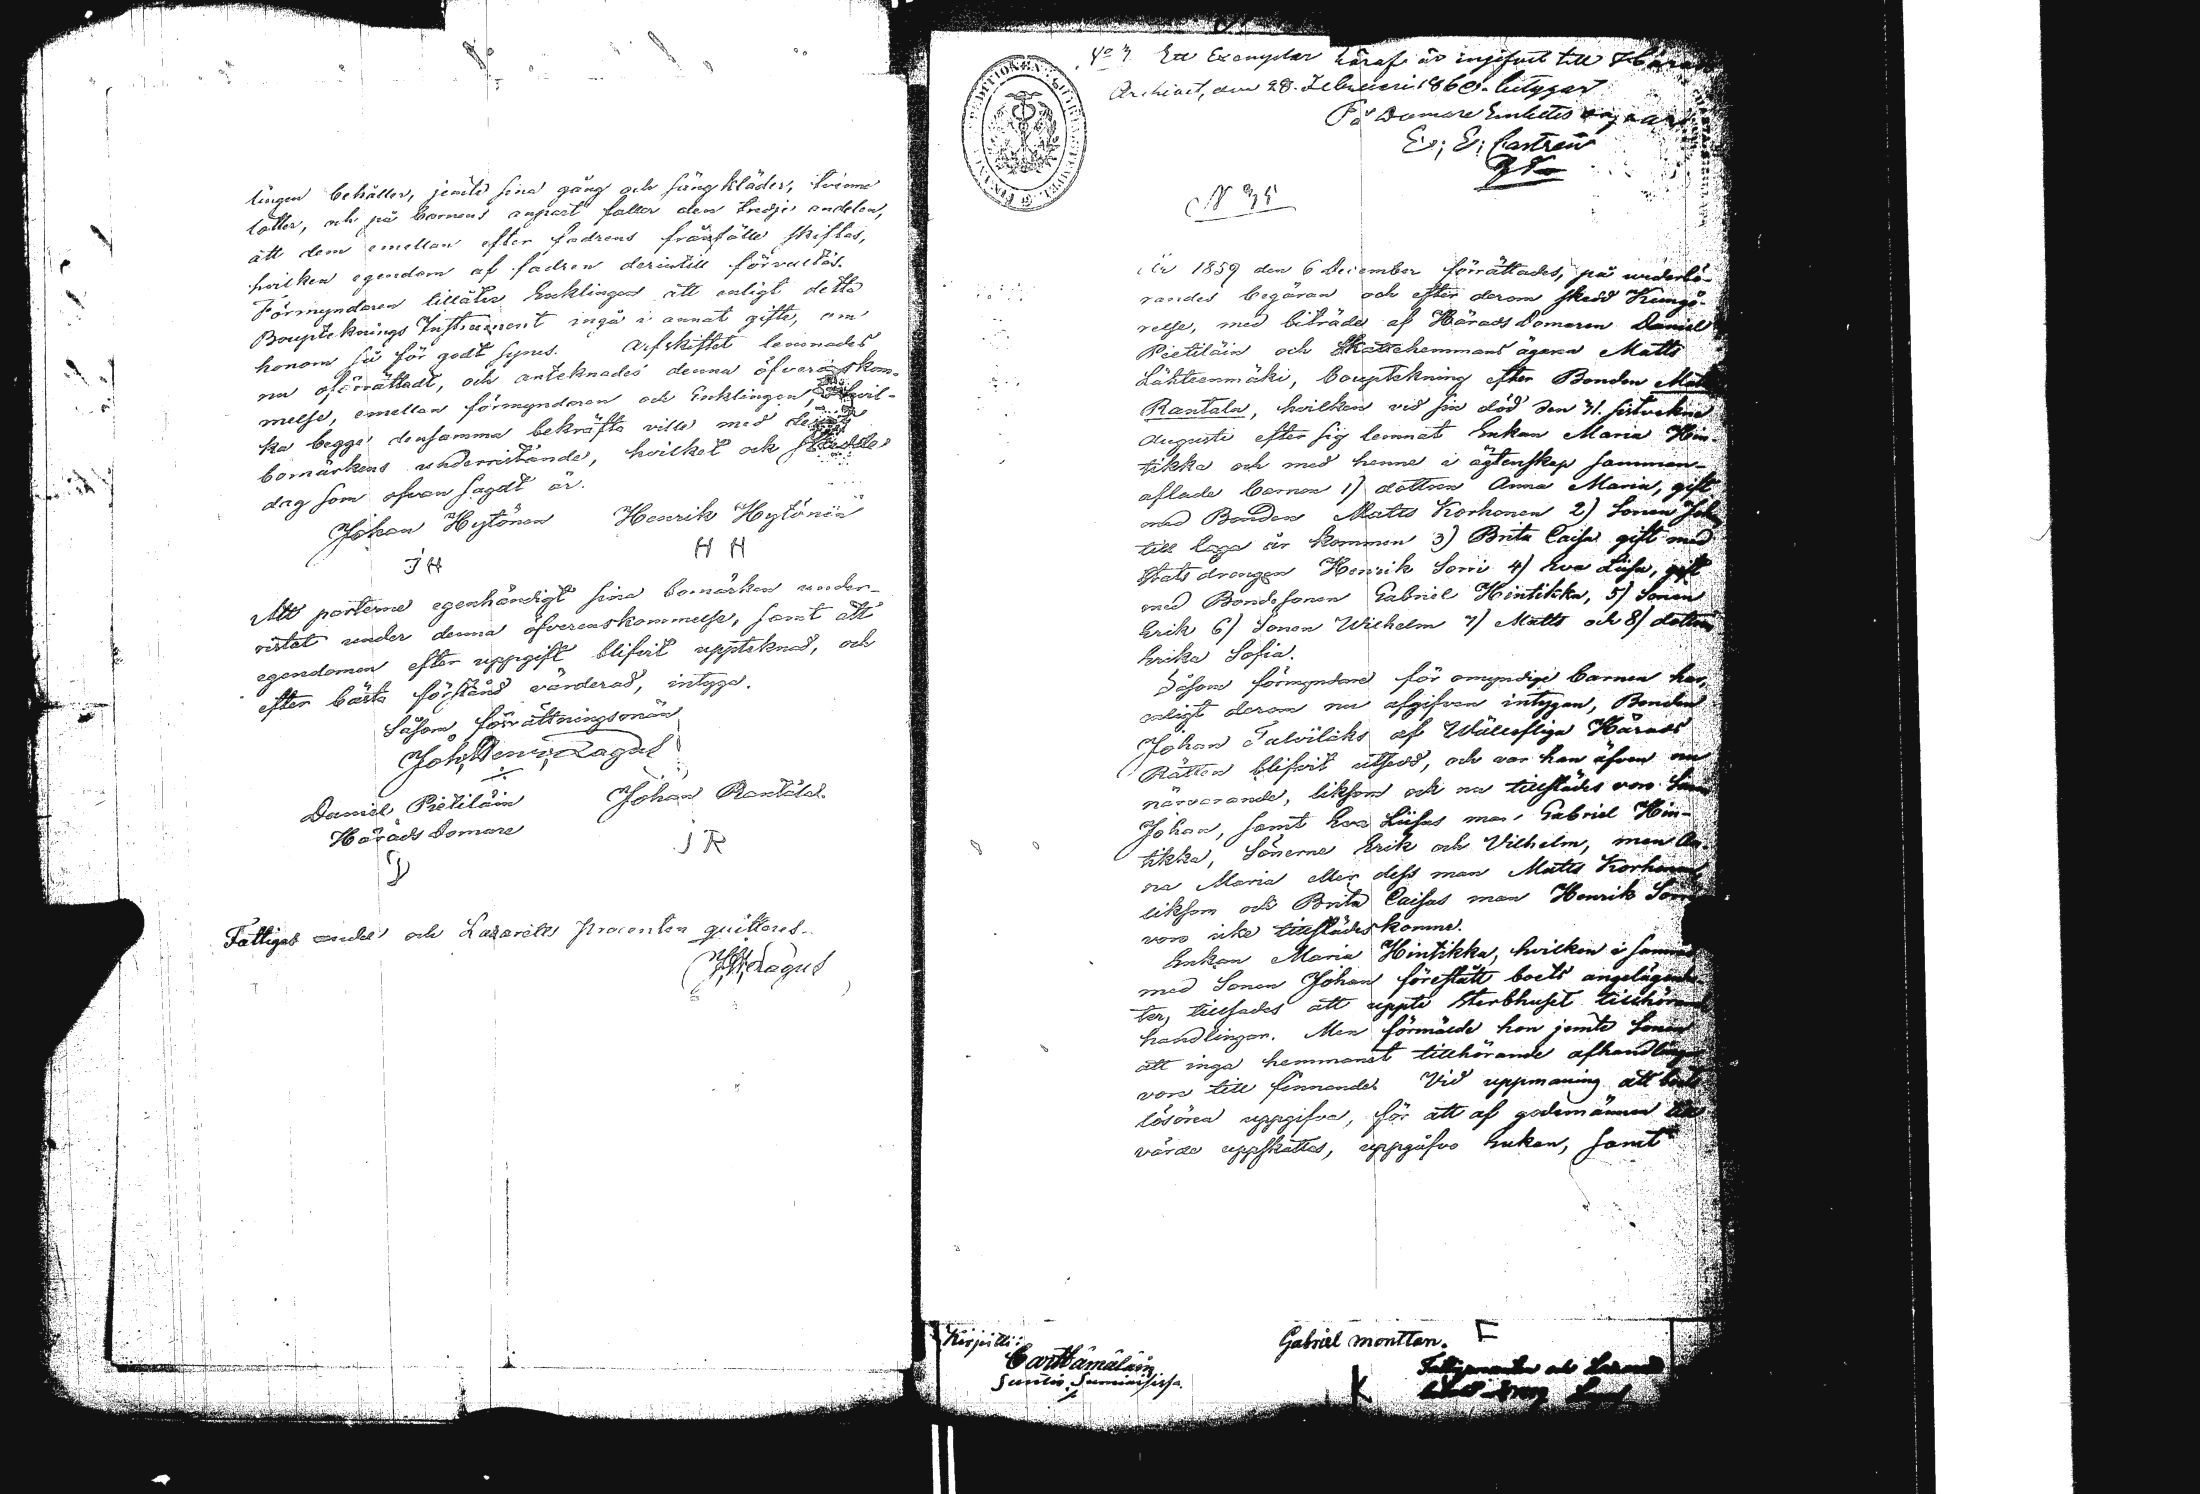 lingen behåller, jemte sina gång och säng kläder, tvenne
lotter, och på barnens anpart faller den tredje andelen,
att dem emellan efter fadrens frånfälle skiftas,
hvilken egendom af fadren derintill förvaltas.
Förmyndaren tillåter Enklingen att enligt detta
Bouptecknings Instrument ingå i annat gifte, om
honom så för godt synes. Arfskiftet lemnades
nu oförrättadt, och anteknades denna öfverenskom-
melse, emellan förmyndaren och Enklingen, hvil-
ka begge densamma bekräfta ville med
bomärkens underristande, hvilket och skedde
dag som ofvan sagdt är.
Johan Hytönen Henrik Hytönen
J H H H
Att parterne egenhändigt sina bomärken under-
ristat under denna öfverenskommelse, samt att
egendomen efter uppgift blifvit uppteknad, och
efter bästa förstånd värderad, intyga.
Såsom förrättningsmän
Joh. Henr. Lagus
Daniel Pietiläin Johan Rantala
Härads Domare J R
Fattiges andel och Lazaretts procenten quitteras.
J. H. Lagus
Ett Exemplar häraf är ingifvet till Härads
Archivet, den 28 Februari 1860. betygar
På Domare Embetets vägnar
E. E. Castrén
N 35
År 1859 den 6 December förrättades, på vederbö-
randes begäran och efter derom skedd Kungö-
relse, med biträde af Härads Domaren Daniel
Pietiläin och Skattehemmans ägaren Matts
Lähteenmäki, bouptekning efter Bonden Matts
Rantala, hvilken vid sin död den 31. sistvekne
Augusti efter sig lemnat Enkan Maria Hin-
tikka och med henne i ägtenskap samman-
aflade barnen 1) dottren Anna Maria, gift
med Bonden Matts Korhonen 2) Sonen Joh
till laga år kommen 3) Brita Caisa gift med
Stats drengen Henrik Sorri 4) Eva Liisa, gift
med Bondesonen Gabriel Hintikka, 5) Sonen
Erik 6) Sonen Wilhelm 7) Matts och 8) dottren
Erika Sofia.
Såsom förmyndare för omyndige barnen har,
enligt derom nu afgifven intygan, Bonden
Johan af Wällofliga Härads
Rätten blifvit utsedd, och var han äfven nu
närvarande, liksom och nu tillstädes voro Sonen
Johan, samt Eva Liisas man Gabriel Hin-
tikka, Sönerne Erik och Vilhelm, men An-
na Maria eller dess man Matts Korhonen
liksom och Brita Caisas man Henrik Sorri
voro icke tillstädeskomne.
Enkan Maria Hintikka, hvilken i samråd
med Sonen Johan förestått boets angelägenhe-
ter, tillsades att uppte Sterbhuset tillhörande
handlingar. Men förmälde hon jemte Sonen
att inga hemmanet tillhörande afhandlingar
voro till finnandes. Vid uppmaning att boets
lösören uppgifva, för att af godemännen till
värde uppskattas, uppgåfvo Enkan, samt
Kirjoitti:
Carl Hämäläin
Suntio Sumiaisissa
Gabriel montten.
K